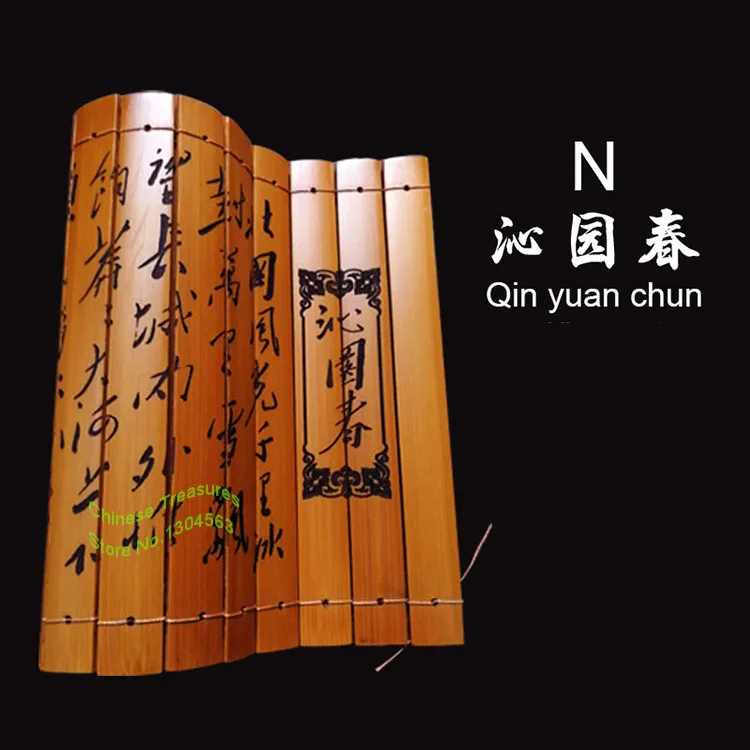 N
沁园春
Qin yuan chun
沁園春
北國風光千里冰
封萬里雪飄
望長城内外惟
餘莽〻大河上下
Chinese Treasures
Store No.1304563